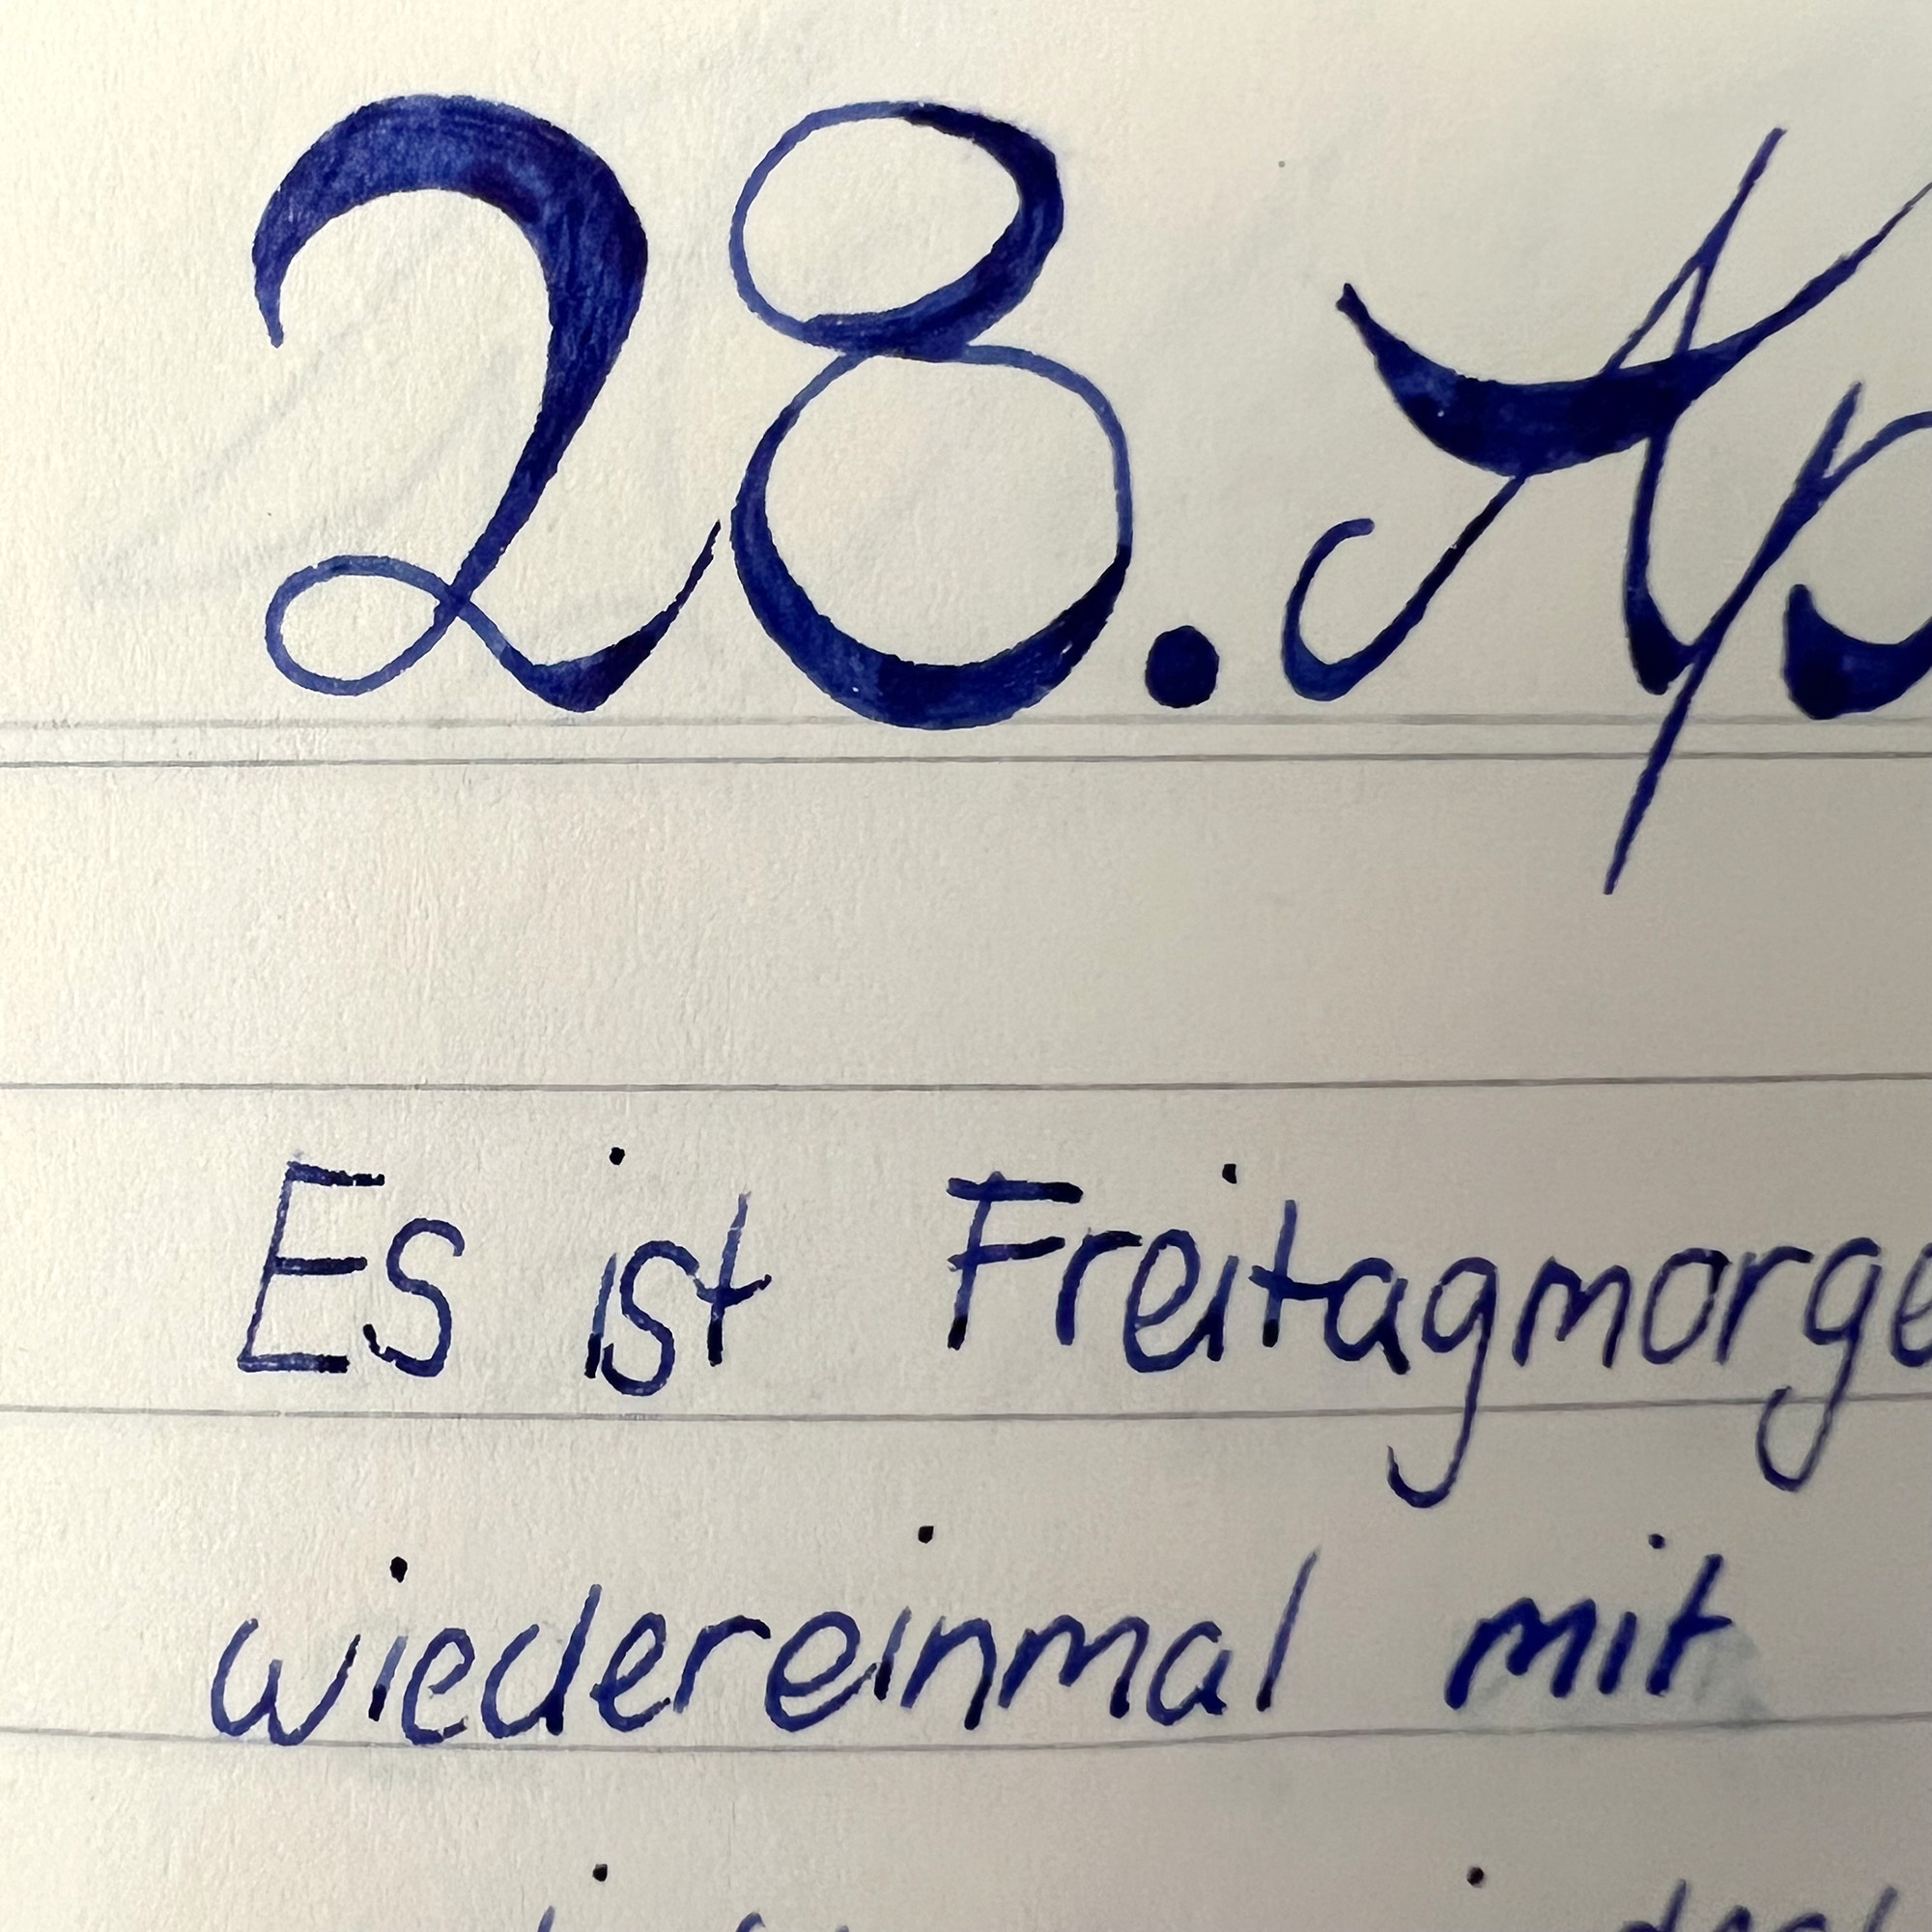 28. Ap
Es ist Freitagmorge
wiedereinmal mit